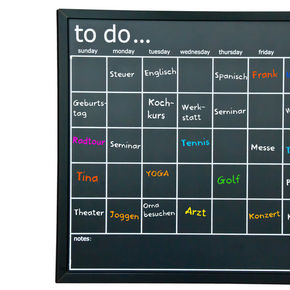 to do...
sunday monday tuesday wednesday thursday friday
Steuer Englisch Spanisch Frank
Geburts-
tag
Koch-
kurs
Werk-
statt
Seminar
Radtour Seminar Tennis Messe
Tina YOGA Golf
Theater Joggen
Oma
besuchen
Arzt Konzert
notes: